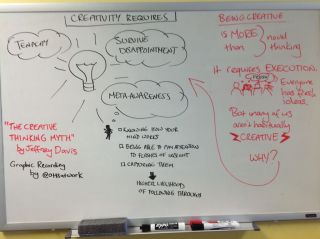 CREATIVITY REQUIRES
TENACITY
SURVIVE
DISAPPOINTMENT
META-AWARENESS
KNOWING HOW YOUR
MIND WORKS
BEING ABLE TO PAY ATTENTION
TO FORMS OF INSIGHT
CAPTURING THEM
HIGHER LIKELIHOOD
OF FOLLOWING THROUGH
"THE CREATIVE
THINKING MYTH"
by Jeffrey Davis
Graphic Recording
by
BEING CREATIVE
IS MORE
than
novel
thinking
It requires EXECUTION.
Everyone
has
ideas.
But many of us
aren't habitually
CREATIVE
WHY?